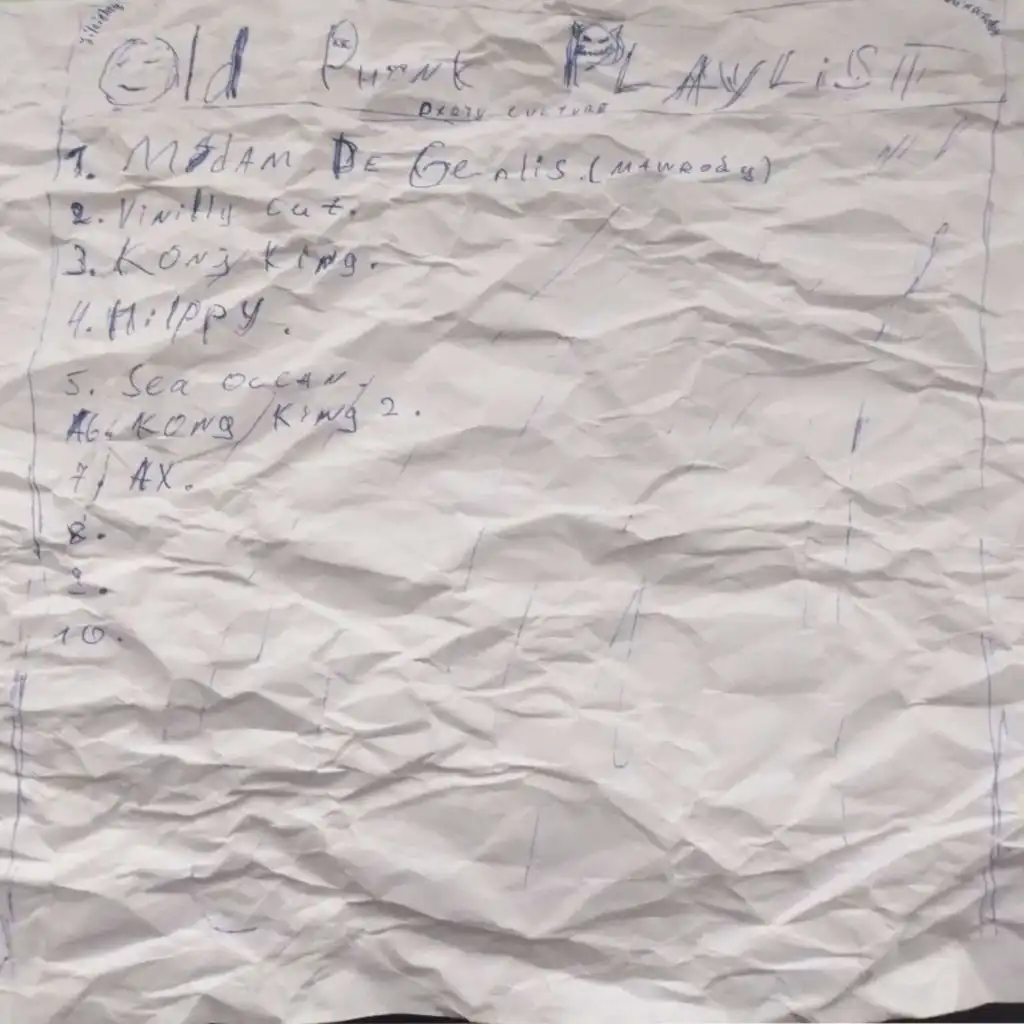 Old Phonk PLAYLiST
1. MADAM DE Genlis. (MAWRODY)
2. Vinilly cut.
3. KONg King.
4. Hilppy.
5. Sea OCEAN,
6. KONg King 2.
7. AX.
8.
9.
10.